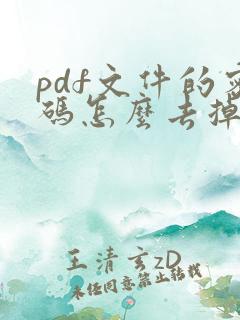 pdf文件的密
碼怎麼去掉
王清玄zD
未经同意禁止转载